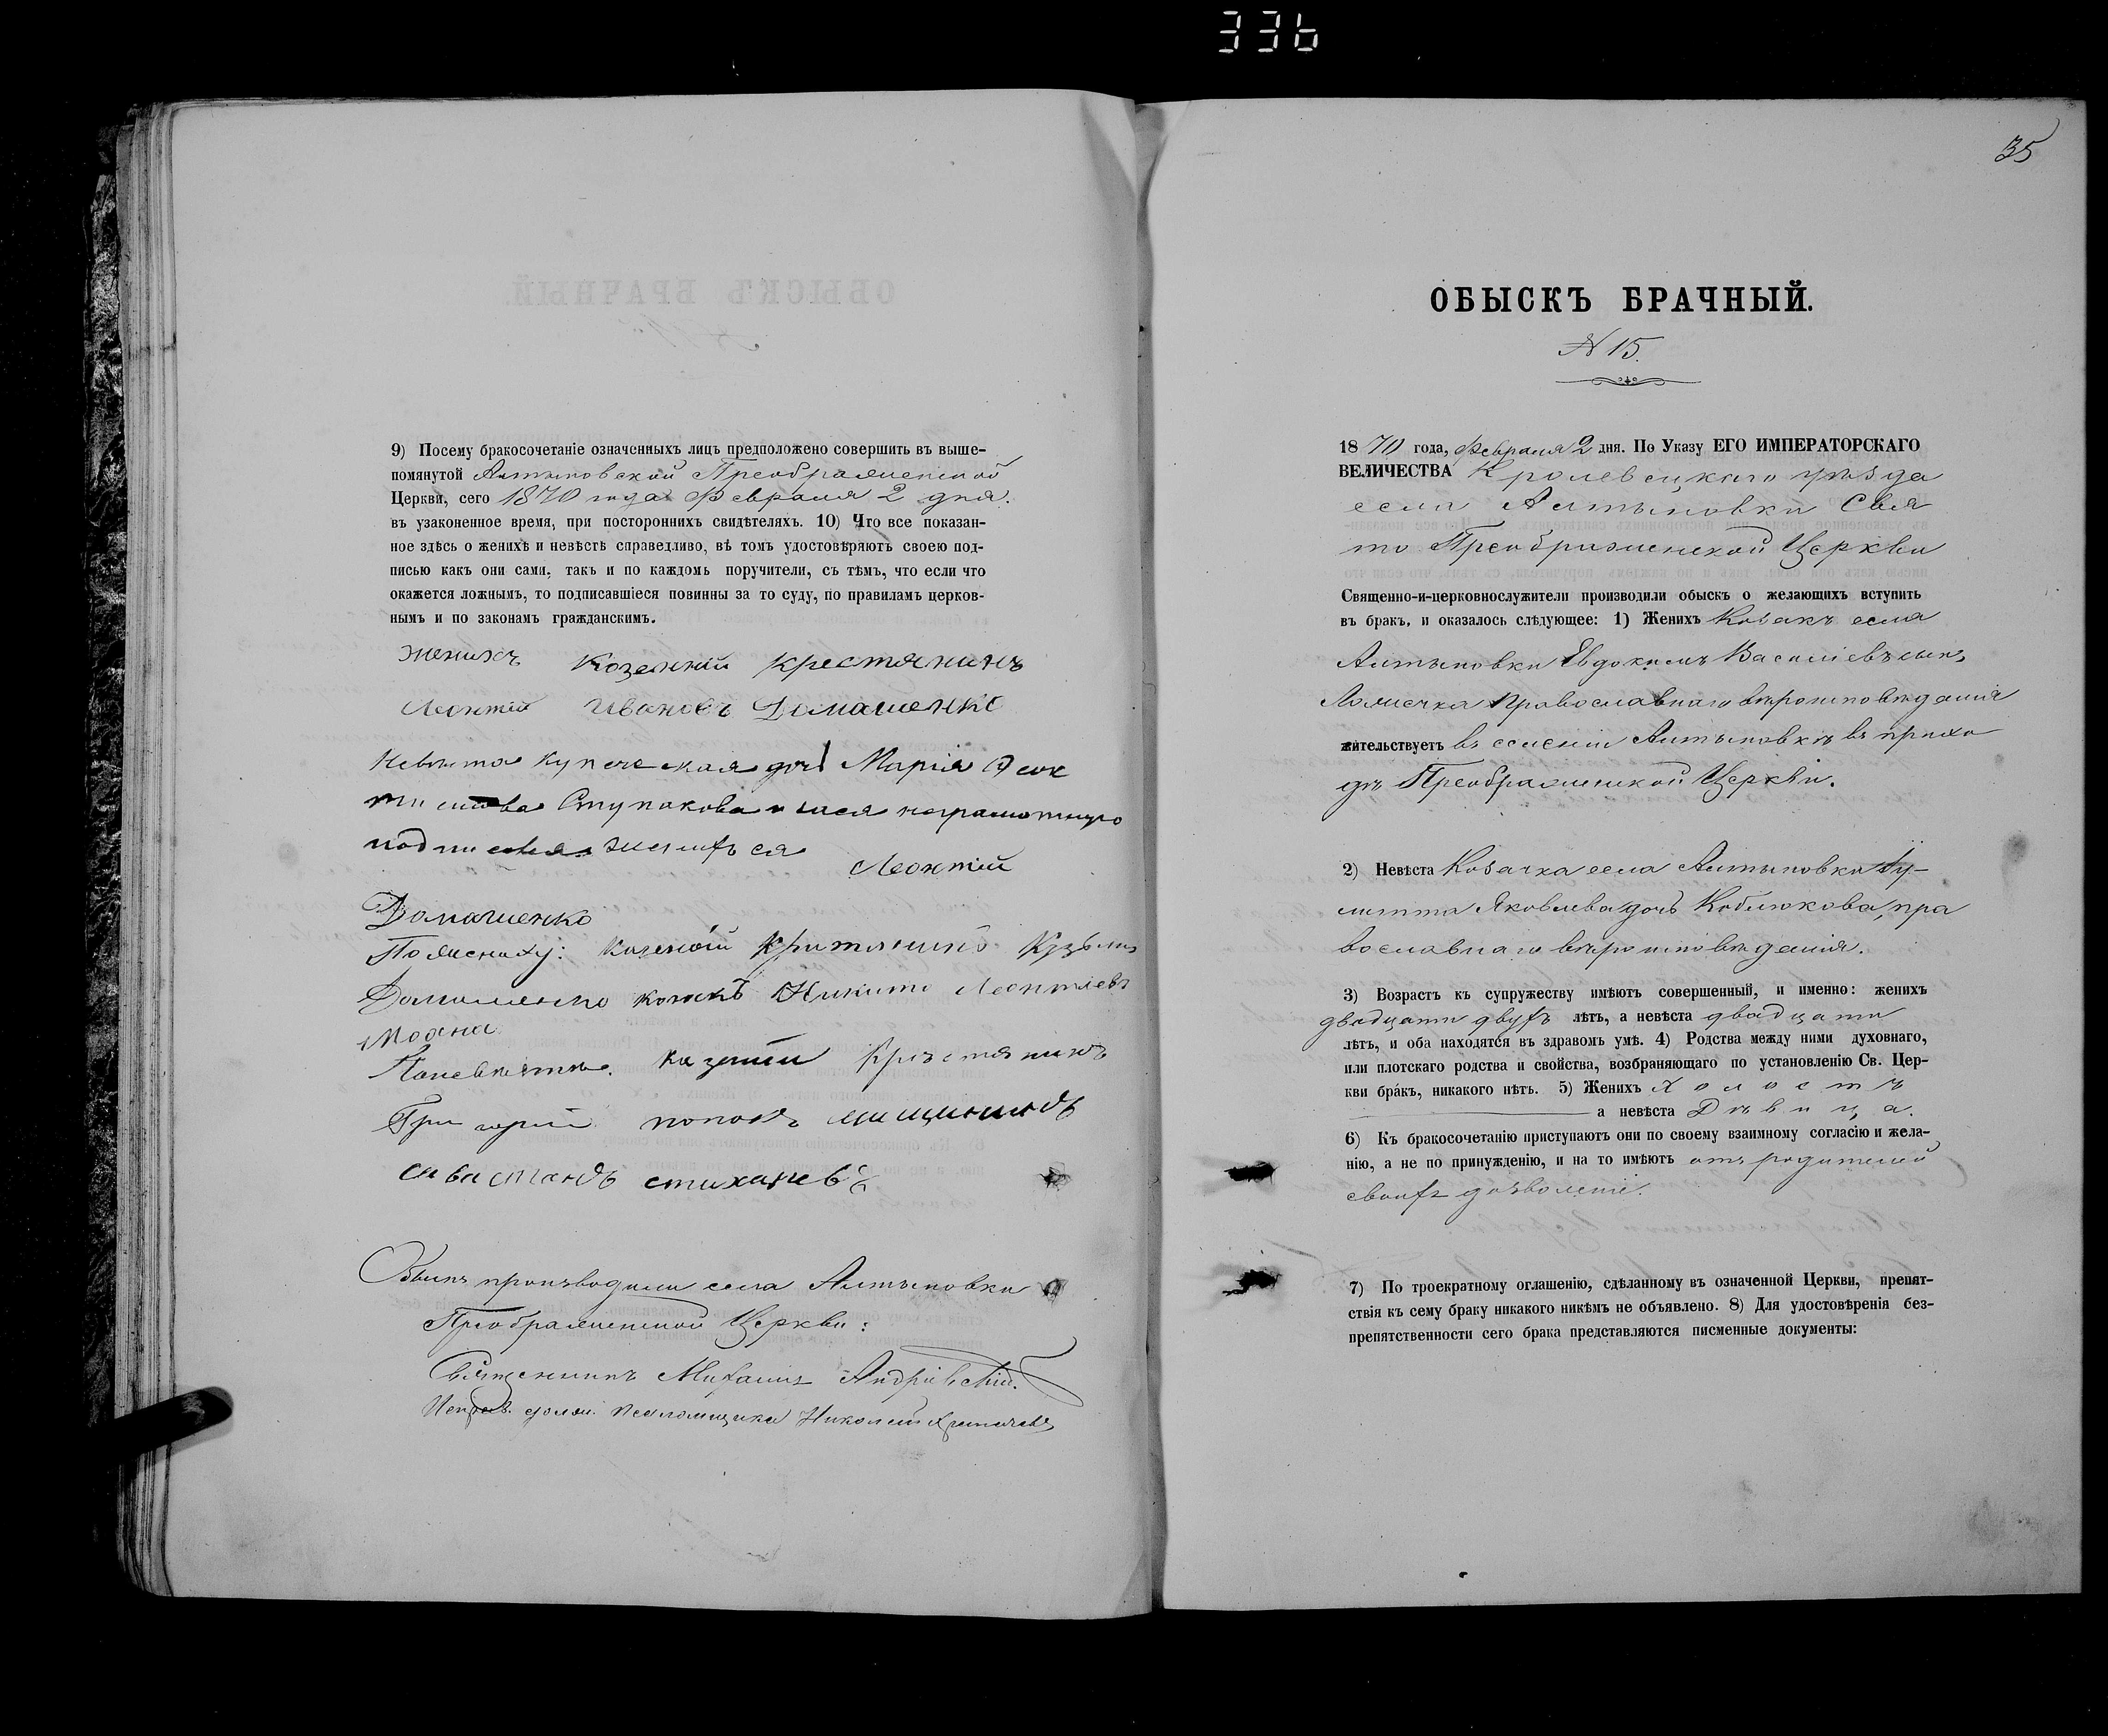 336
9) Посему бракосочетаніе означенныхъ лицъ предположено совершить въ выше-
помянутой Алтыновской Преображенской
Церкви, сего 1870 года Февраля 2 дня.
въ узаконенное время, при постороннихъ свидѣтеляхъ. 10) Что все показан-
ное здѣсь о женихѣ и невѣстѣ справедливо, въ томъ удостовѣряютъ своею под-
писью какъ они сами, такъ и по каждомъ поручители, съ тѣмъ, что если что
окажется ложнымъ, то подписавшіеся повинны за то суду, по правиламъ церков-
нымъ и по законамъ гражданскимъ.
женихъ Козенній крестянинъ
Леонтій Ивановъ Домашенко
Невѣста купеческая дочь Марія Феок
тистова Ступакова а за нея неграмотную
Леонтій
Домашенко
По жениху: Кузьма
Домашенко Никита Леонтіевъ
По невѣсте. казенни
Григорій поповъ
Обыскъ производили села Алтыновки
Преображенской Церкви:
Священникъ Михаилъ Андріевскій.
Исправ. долж. псаломщика Николай
35
ОБЫСКЪ БРАЧНЫЙ.
N 15.
1870 года, Февраля 2 дня. По Указу ЕГО ИМПЕРАТОРСКАГО
ВЕЛИЧЕСТВА Кролевецкаго уѣзда
села Алтыновки Свя
то Преображенской Церкви
Священно-и-церковнослужители производили обыскъ о желающихъ вступить
въ бракъ, и оказалось слѣдующее: 1) Женихъ Козакъ села
Алтыновки Евдокимъ Василіевъ сынъ
православнаго вѣроисповѣданія
жительствуетъ въ селеніи Алтыновкѣ въ прихо
дѣ Преображенской Церкви.
2) Невѣста Козачка села Алтыновки Іу-
литта Яковлева дочь Кобизкова, пра
вославнаго вѣроисповѣданія.
3) Возрастъ къ супружеству имѣютъ совершенный, и именно: женихъ
двадцати двухъ лѣтъ, а невѣста двадцати
лѣтъ, и оба находятся въ здравомъ умѣ. 4) Родства между ними духовнаго,
или плотскаго родства и свойства, возбраняющаго по установленію Св. Цер-
кви бракъ, никакого нѣтъ. 5) Женихъ Холостъ
а невѣста Дѣвица.
6) Къ бракосочетанію приступаютъ они по своему взаимному согласію и жела-
нію, а не по принужденію, и на то имѣютъ отъ родителей
своихъ дозволеніе.
7) По троекратному оглашенію, сдѣланному въ означенной Церкви, препят-
ствія къ сему браку никакого никѣмъ не объявлено. 8) Для удостовѣренія без-
препятственности сего брака представляются писменные документы: